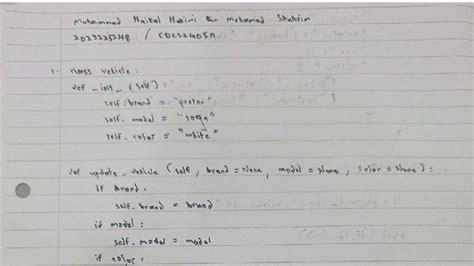 Muhammad Haikal Hakimi Bin Mohamad Shahrim
2023225248 / CDCS2405A
1. class vehicle :
def _init_ (self)
self.brand = "proton"
self.model = "saga"
self.color = "white"
def update_vehicle (self, brand=None, model=None, color=None):
if brand:
self.brand = brand
if model:
self.model = model
if color: